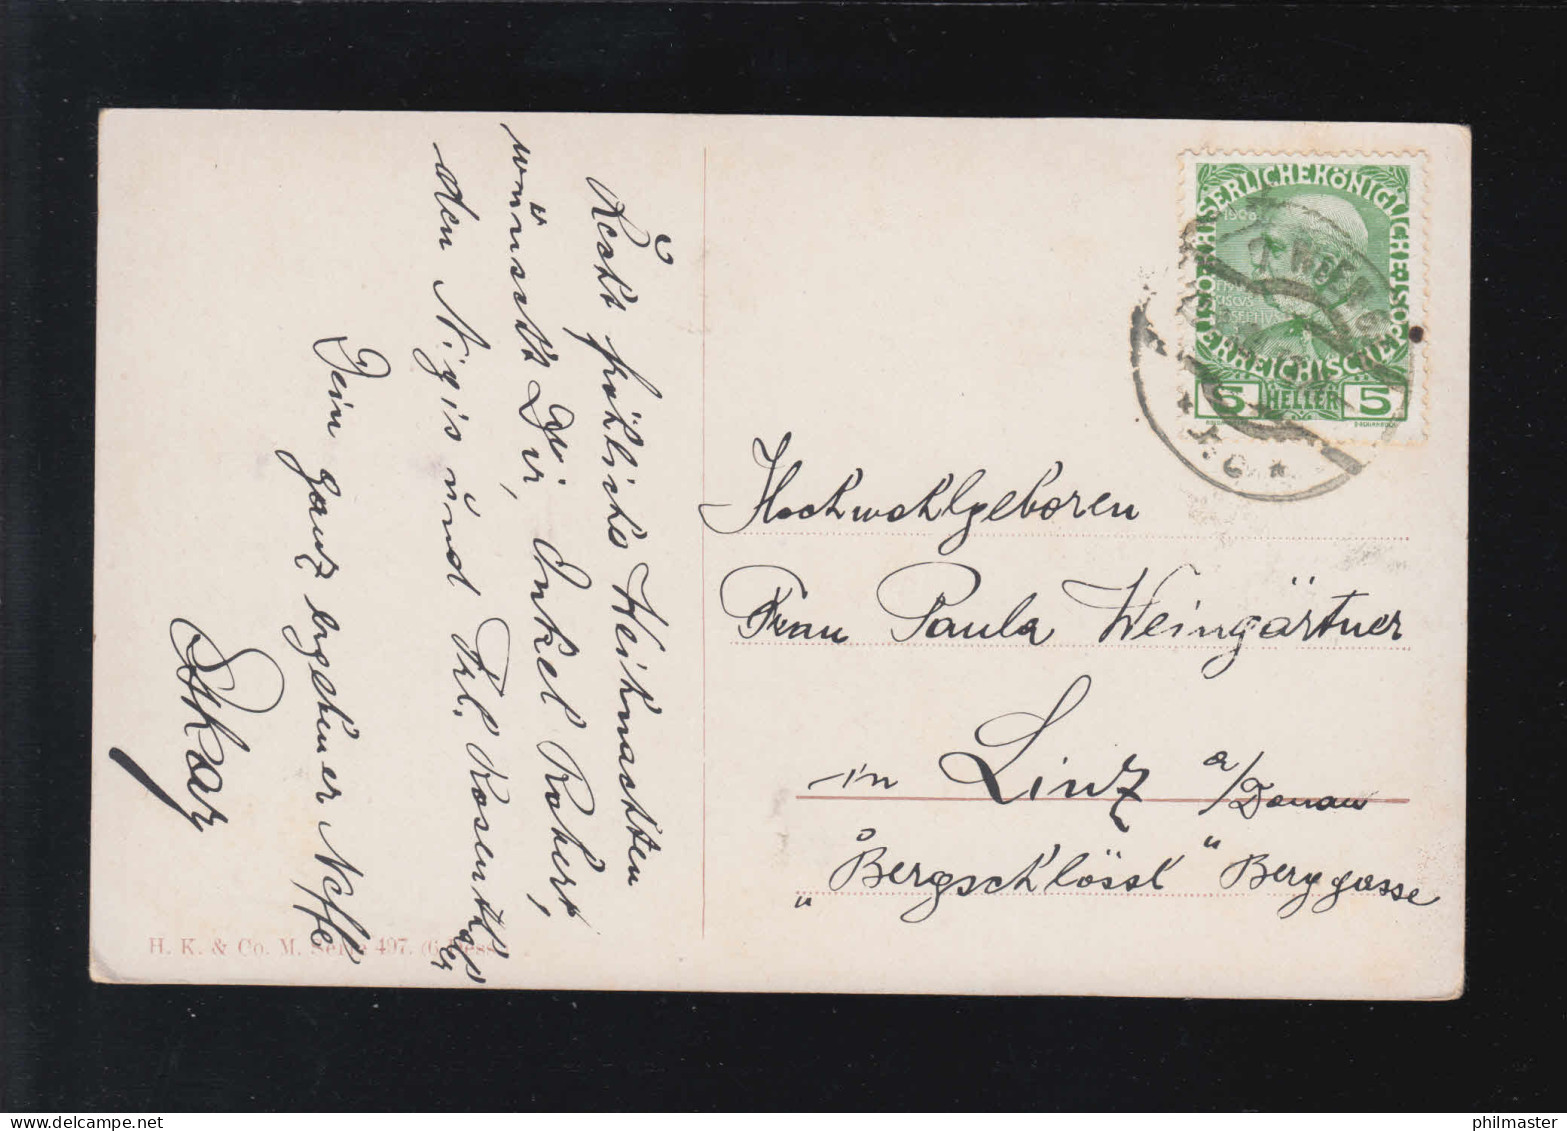 Recht fröhliche Weihnachten
wünscht Dir, Onkel Robert,
den Nigis und Frl. Rosenthaler
Dein ganz ergebener Neffe
Oskar
H. K. & Co. M. Serie 497. (6 Dess.
KAISERLICHEKÖNIGLICHE ÖSTERREICHISCHE POST
1908
5 HELLER 5
WIEN
Hochwohlgeboren
Frau Paula Weingärtner
in Linz a/Donau
"Bergschlössl" Berggasse
philmaster
delcampe.net